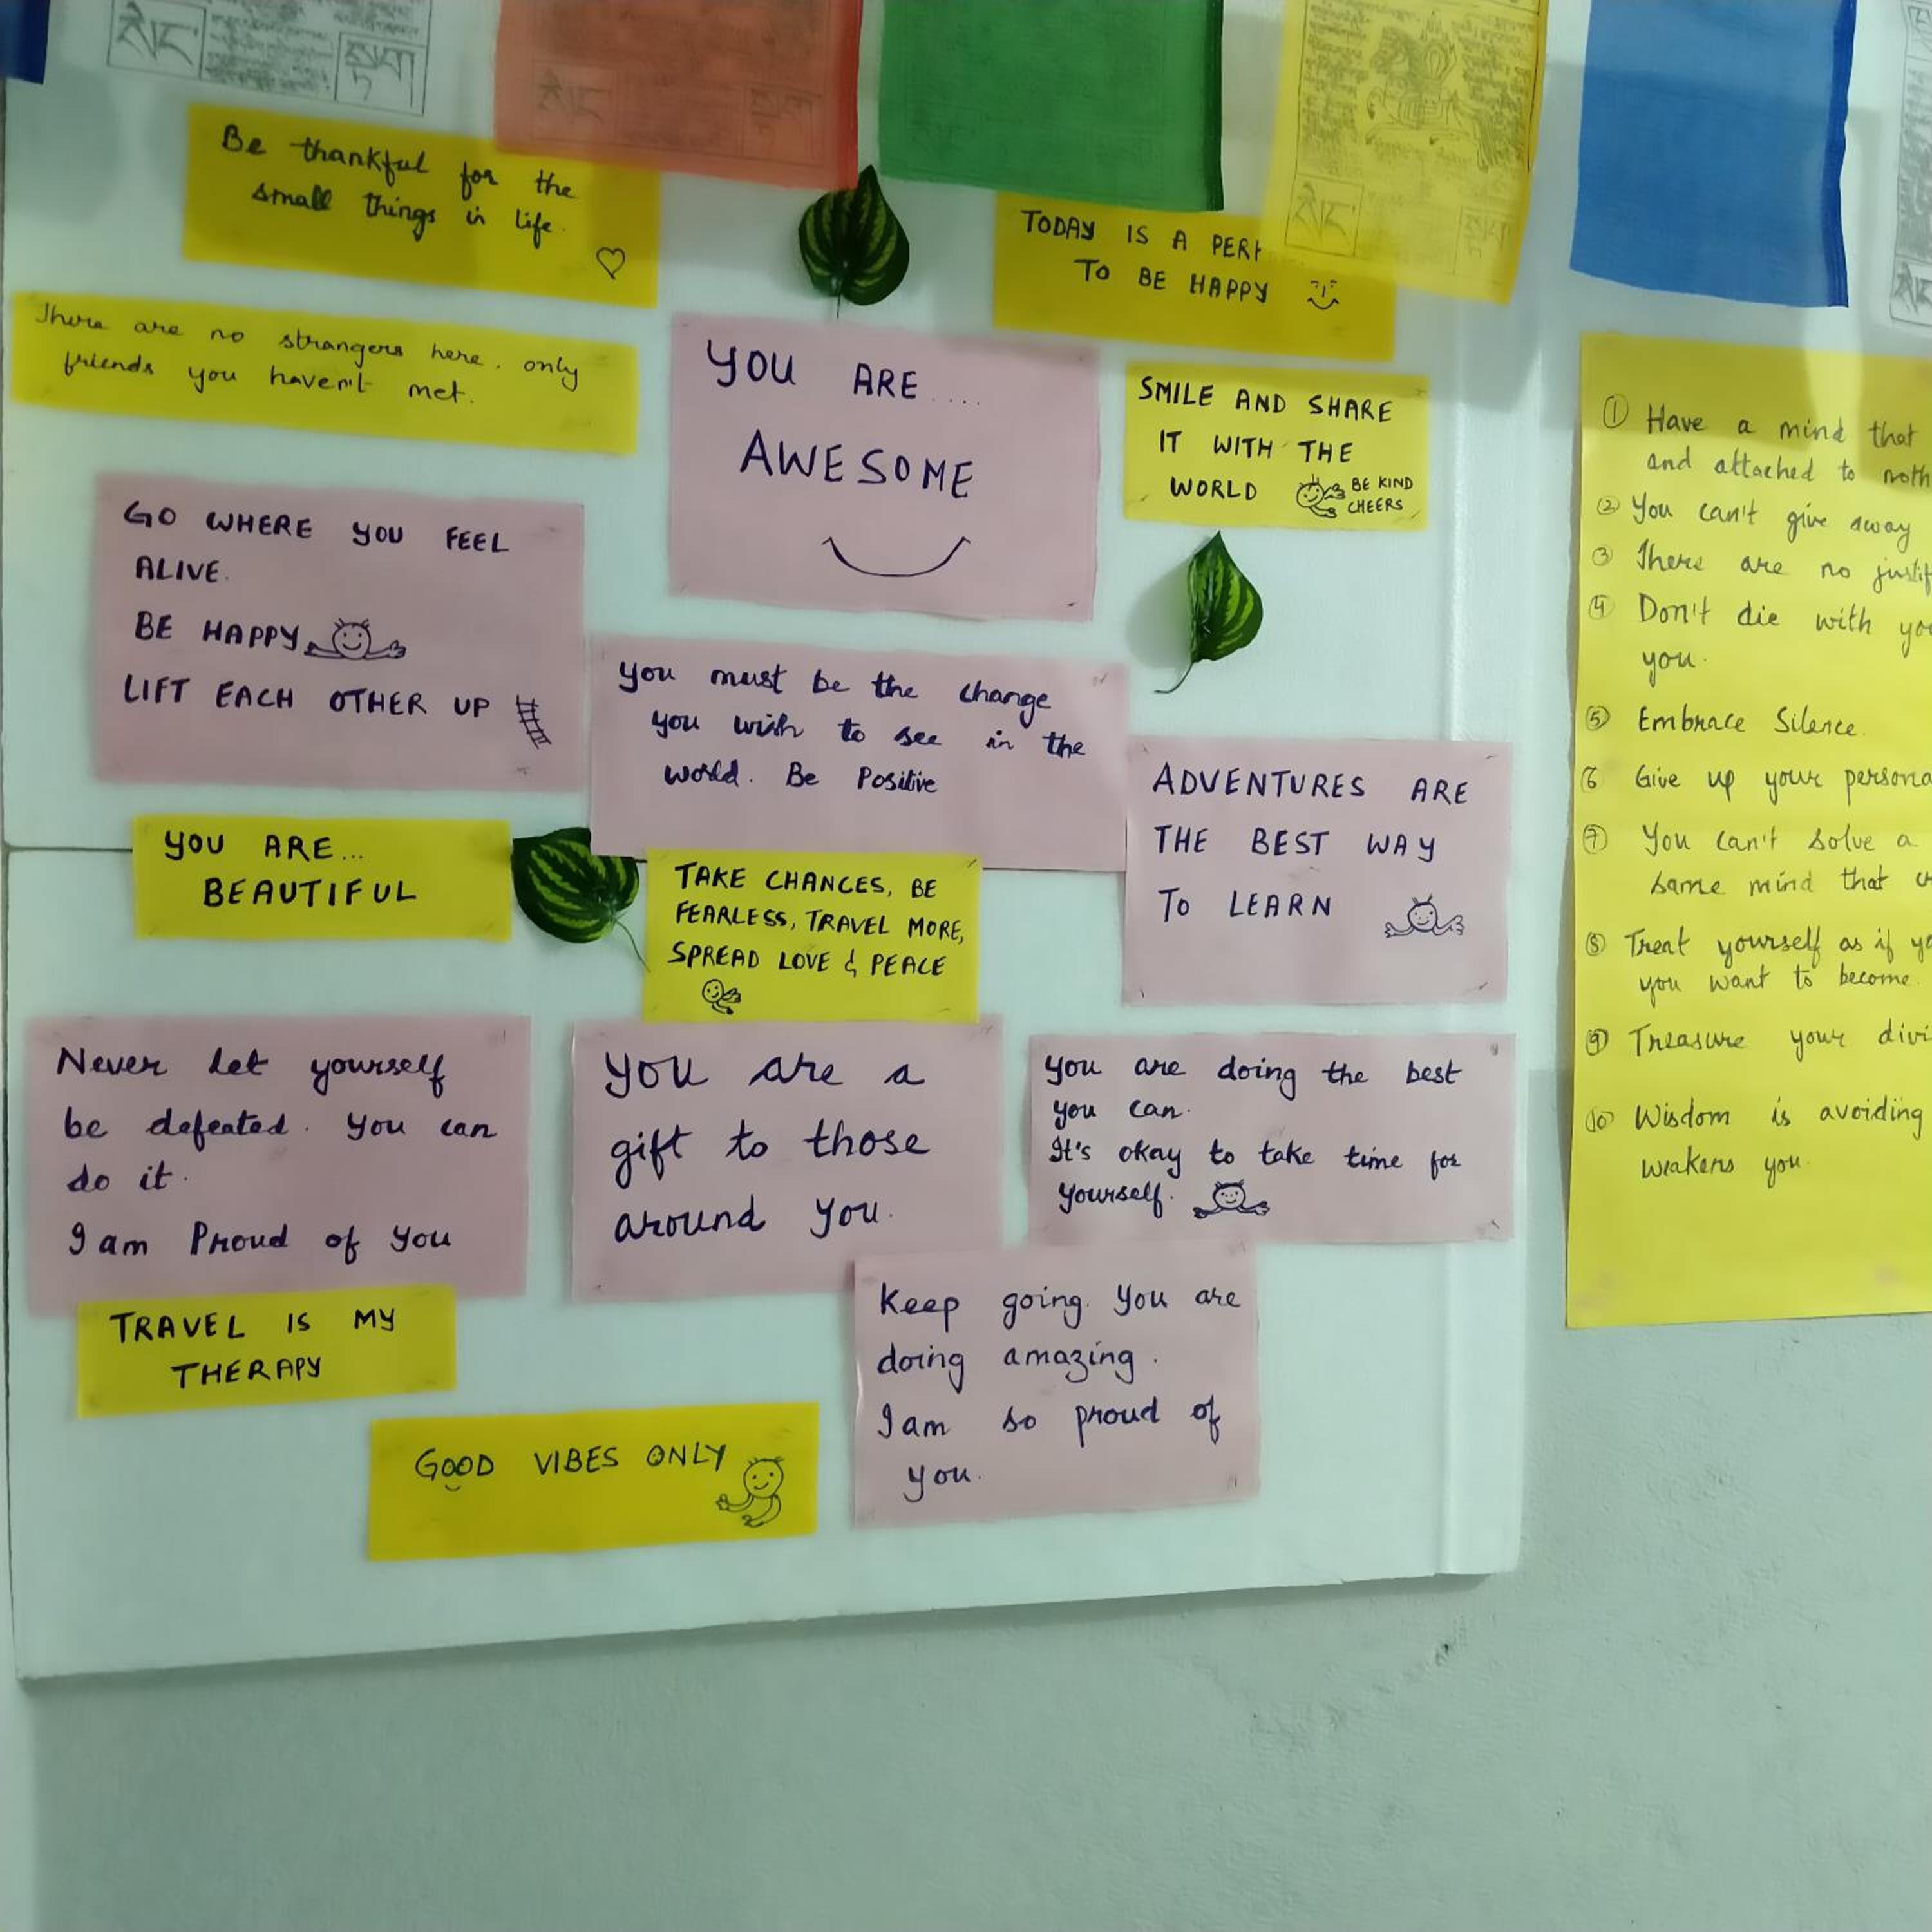 Be thankful for the
small things in life.
TODAY IS A
TO BE HAPPY
There are no strangers here, only
friends you haven't met.
YOU ARE....
AWESOME
SMILE AND SHARE
IT WITH THE
WORLD
BE KIND
CHEERS
GO WHERE YOU FEEL
ALIVE.
BE HAPPY
LIFT EACH OTHER UP
You must be the change
you wish to see in the
world. Be Positive
ADVENTURES ARE
THE BEST WAY
TO LEARN
YOU ARE...
BEAUTIFUL
TAKE CHANCES, BE
FEARLESS, TRAVEL MORE,
SPREAD LOVE & PEACE
Never let yourself
be defeated. You can
do it.
I am Proud of You
You are a
gift to those
around you.
You are doing the best
you can.
It's okay to take time for
yourself.
TRAVEL IS MY
THERAPY
Keep going. You are
doing amazing.
I am so proud of
you.
GOOD VIBES ONLY
① Have a mind that
and attached to
② You can't give away
③ There are no
④ Don't die with
you.
⑤ Embrace Silence.
⑥ Give up your
⑦ You can't solve a
same mind that
⑧ Treat yourself as if
you want to become.
⑨ Treasure your
⑩ Wisdom is avoiding
weakens you.